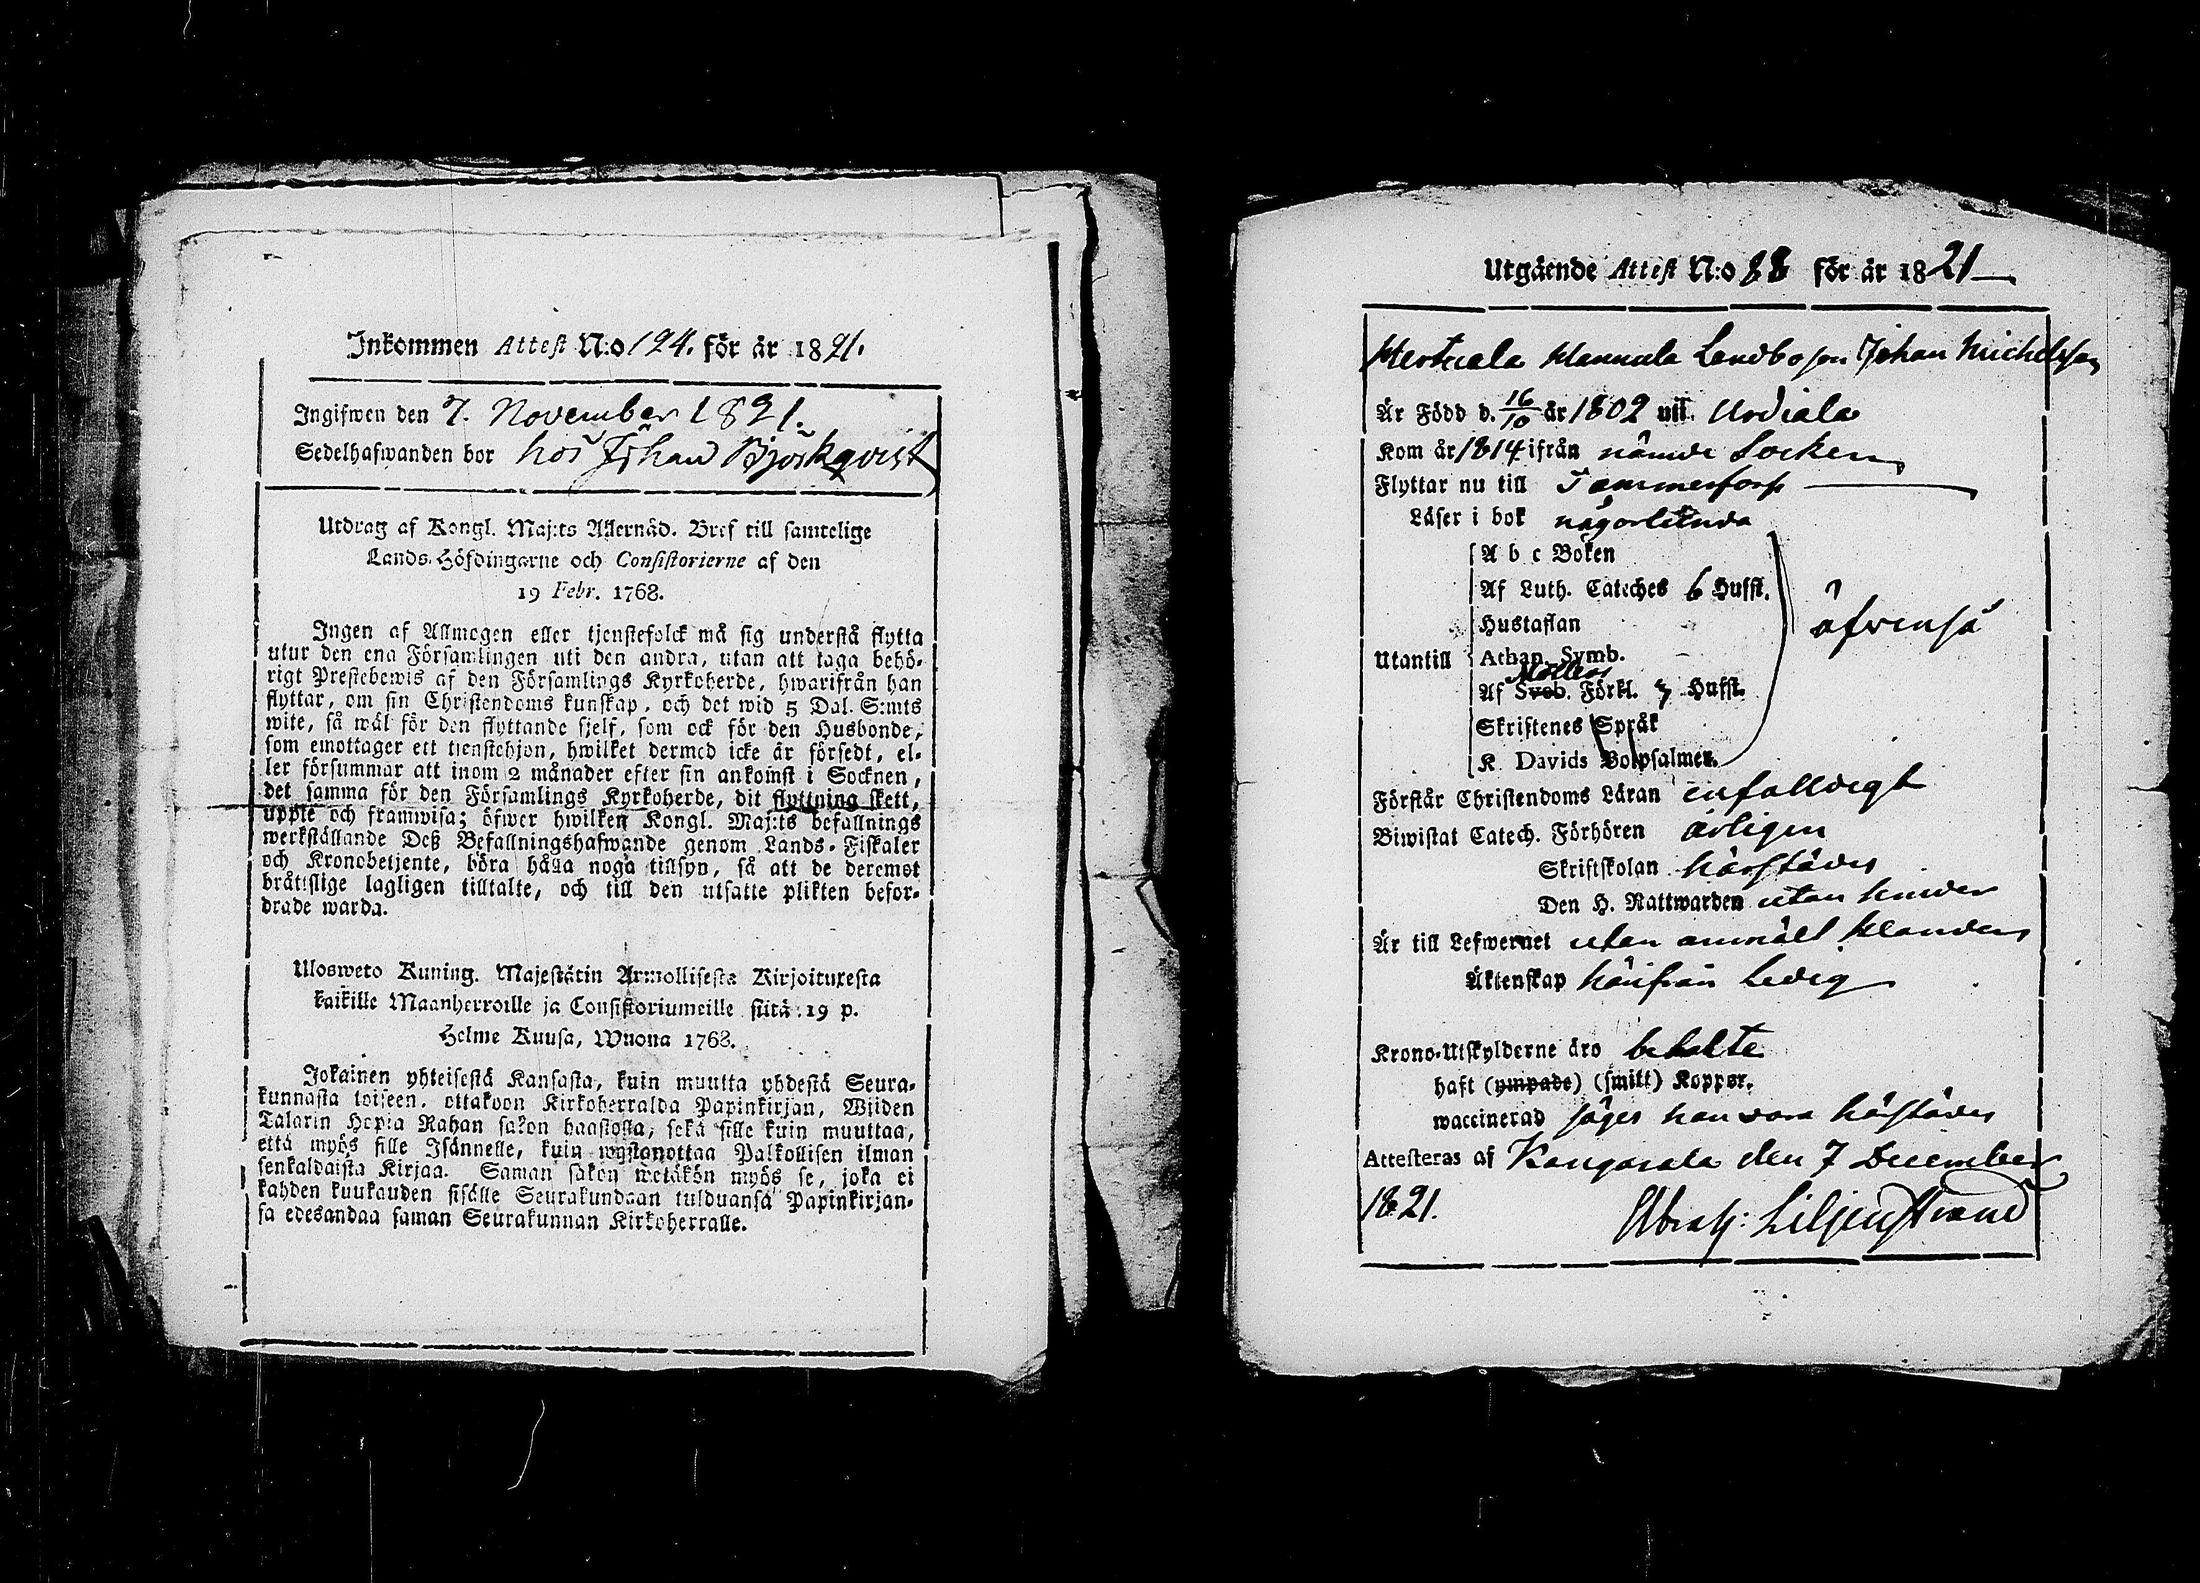 Inkommen Attest N:o 124. för år 1821.
Ingifwen den 7. November 1821.
Sedelhafwanden bor hos Johan Björkqvist
Utdrag af Kongl. Maj:ts Allernåd. Bref till samtelige
Lands-Höfdingarne och Consistorierne af den
19 Febr. 1768.
Ingen af Allmogen eller tjenstefolck må sig understå flytta
utur den ena Församlingen uti den andra, utan att taga behö-
rigt Prestebewis af den Församlings Kyrkoherde, hwarifrån han
flyttar, om sin Christendoms kunskap, och det wid 5 Dal. S:mts
wite, så wäl för den flyttande sjelf, som ock för den Husbonde,
som emottager ett tjenstehjon, hwilket dermed icke är försedt, el-
ler försummar att inom 2 månader efter sin ankomst i Socknen,
det samma för den Församlings Kyrkoherde, dit flyttning skett,
uppte och framwisa; öfwer hwilken Kongl. Maj:ts befallnings
werkställande Deß Befallningshafwande genom Lands-Fiskaler
och Kronobetjente, böra hålla noga tillsyn, så att de deremot
bråtislige lagligen tilltalte, och till den utsatte plikten befor-
drade warda.
Ulosweto Kuning. Majestätin Armollisesta Kirjoituxesta
kaikille Maanherroille ja Consistoriumeille siitä 19 p.
Helme Kuusa, Wuona 1768.
Jokainen yhteisestä Kansasta, kuin muutta yhdestä Seura-
kunnasta toiseen, ottakoon Kirkoherralda Papinkirjan, Wiiden
Talarin Hopia Rahan sakon haastolla, sekä sille kuin muuttaa,
että myös sille Isännelle, kuin wystanottaa Palkollisen ilman
senkaldaista Kirjaa. Saman sakon wetäkön myös se, joka ei
kahden kuukauden sisälle Seurakundaan tulduansa Papinkirjan-
sa edesandaa saman Seurakunnan Kirkoherralle.
Utgående Attest N:o 88 för år 1821
Mannula Landbo son Johan Michelsson
Är Född d. 16/10 år 1802 uti Urdiala
Kom år 1814 ifrån nämde Socken
Flyttar nu till Tammerfors
Läser i bok någorlunda
Utantill
A b c Boken
Af Luth. Cateches 6 Hufst.
Hustaflan
Athan. Symb.
Möllers
Af Sveb. Förkl. 7 Hufst.
Skriftenes Språk
K. Davids Botpsalmer.
äfvenså
Förstår Christendoms Läran enfalldigt
Biwistat Catech. Förhören årligen
Skriftskolan härstädes
Den H. Nattwarden utan hinder
Är till Lefwernet utan anmält klander
Äktenskap härifrån Ledig
Krono-Utskylderne äro betalte
haft (ympade) (smitt) Koppor.
waccinerad säges han vara härstädes
Attesteras af Kangasala den 7 December
1821. Abrah: Liljenstrand